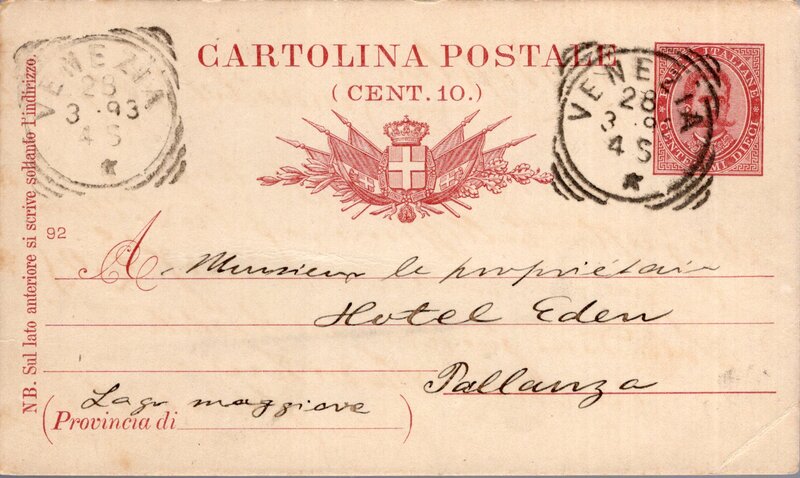 CARTOLINA POSTALE
(CENT. 10.)
VENEZIA
28
3 .93
4 S
VENEZIA
28
3 .9
4 S
POSTE ITALIANE
CENTESIMI DIECI
NB. Sul lato anteriore si scrive soltanto l'indirizzo.
92
A. Monsieur le propriétair
Hotel Eden
Pallanza
Lago maggiore
(Provincia di )